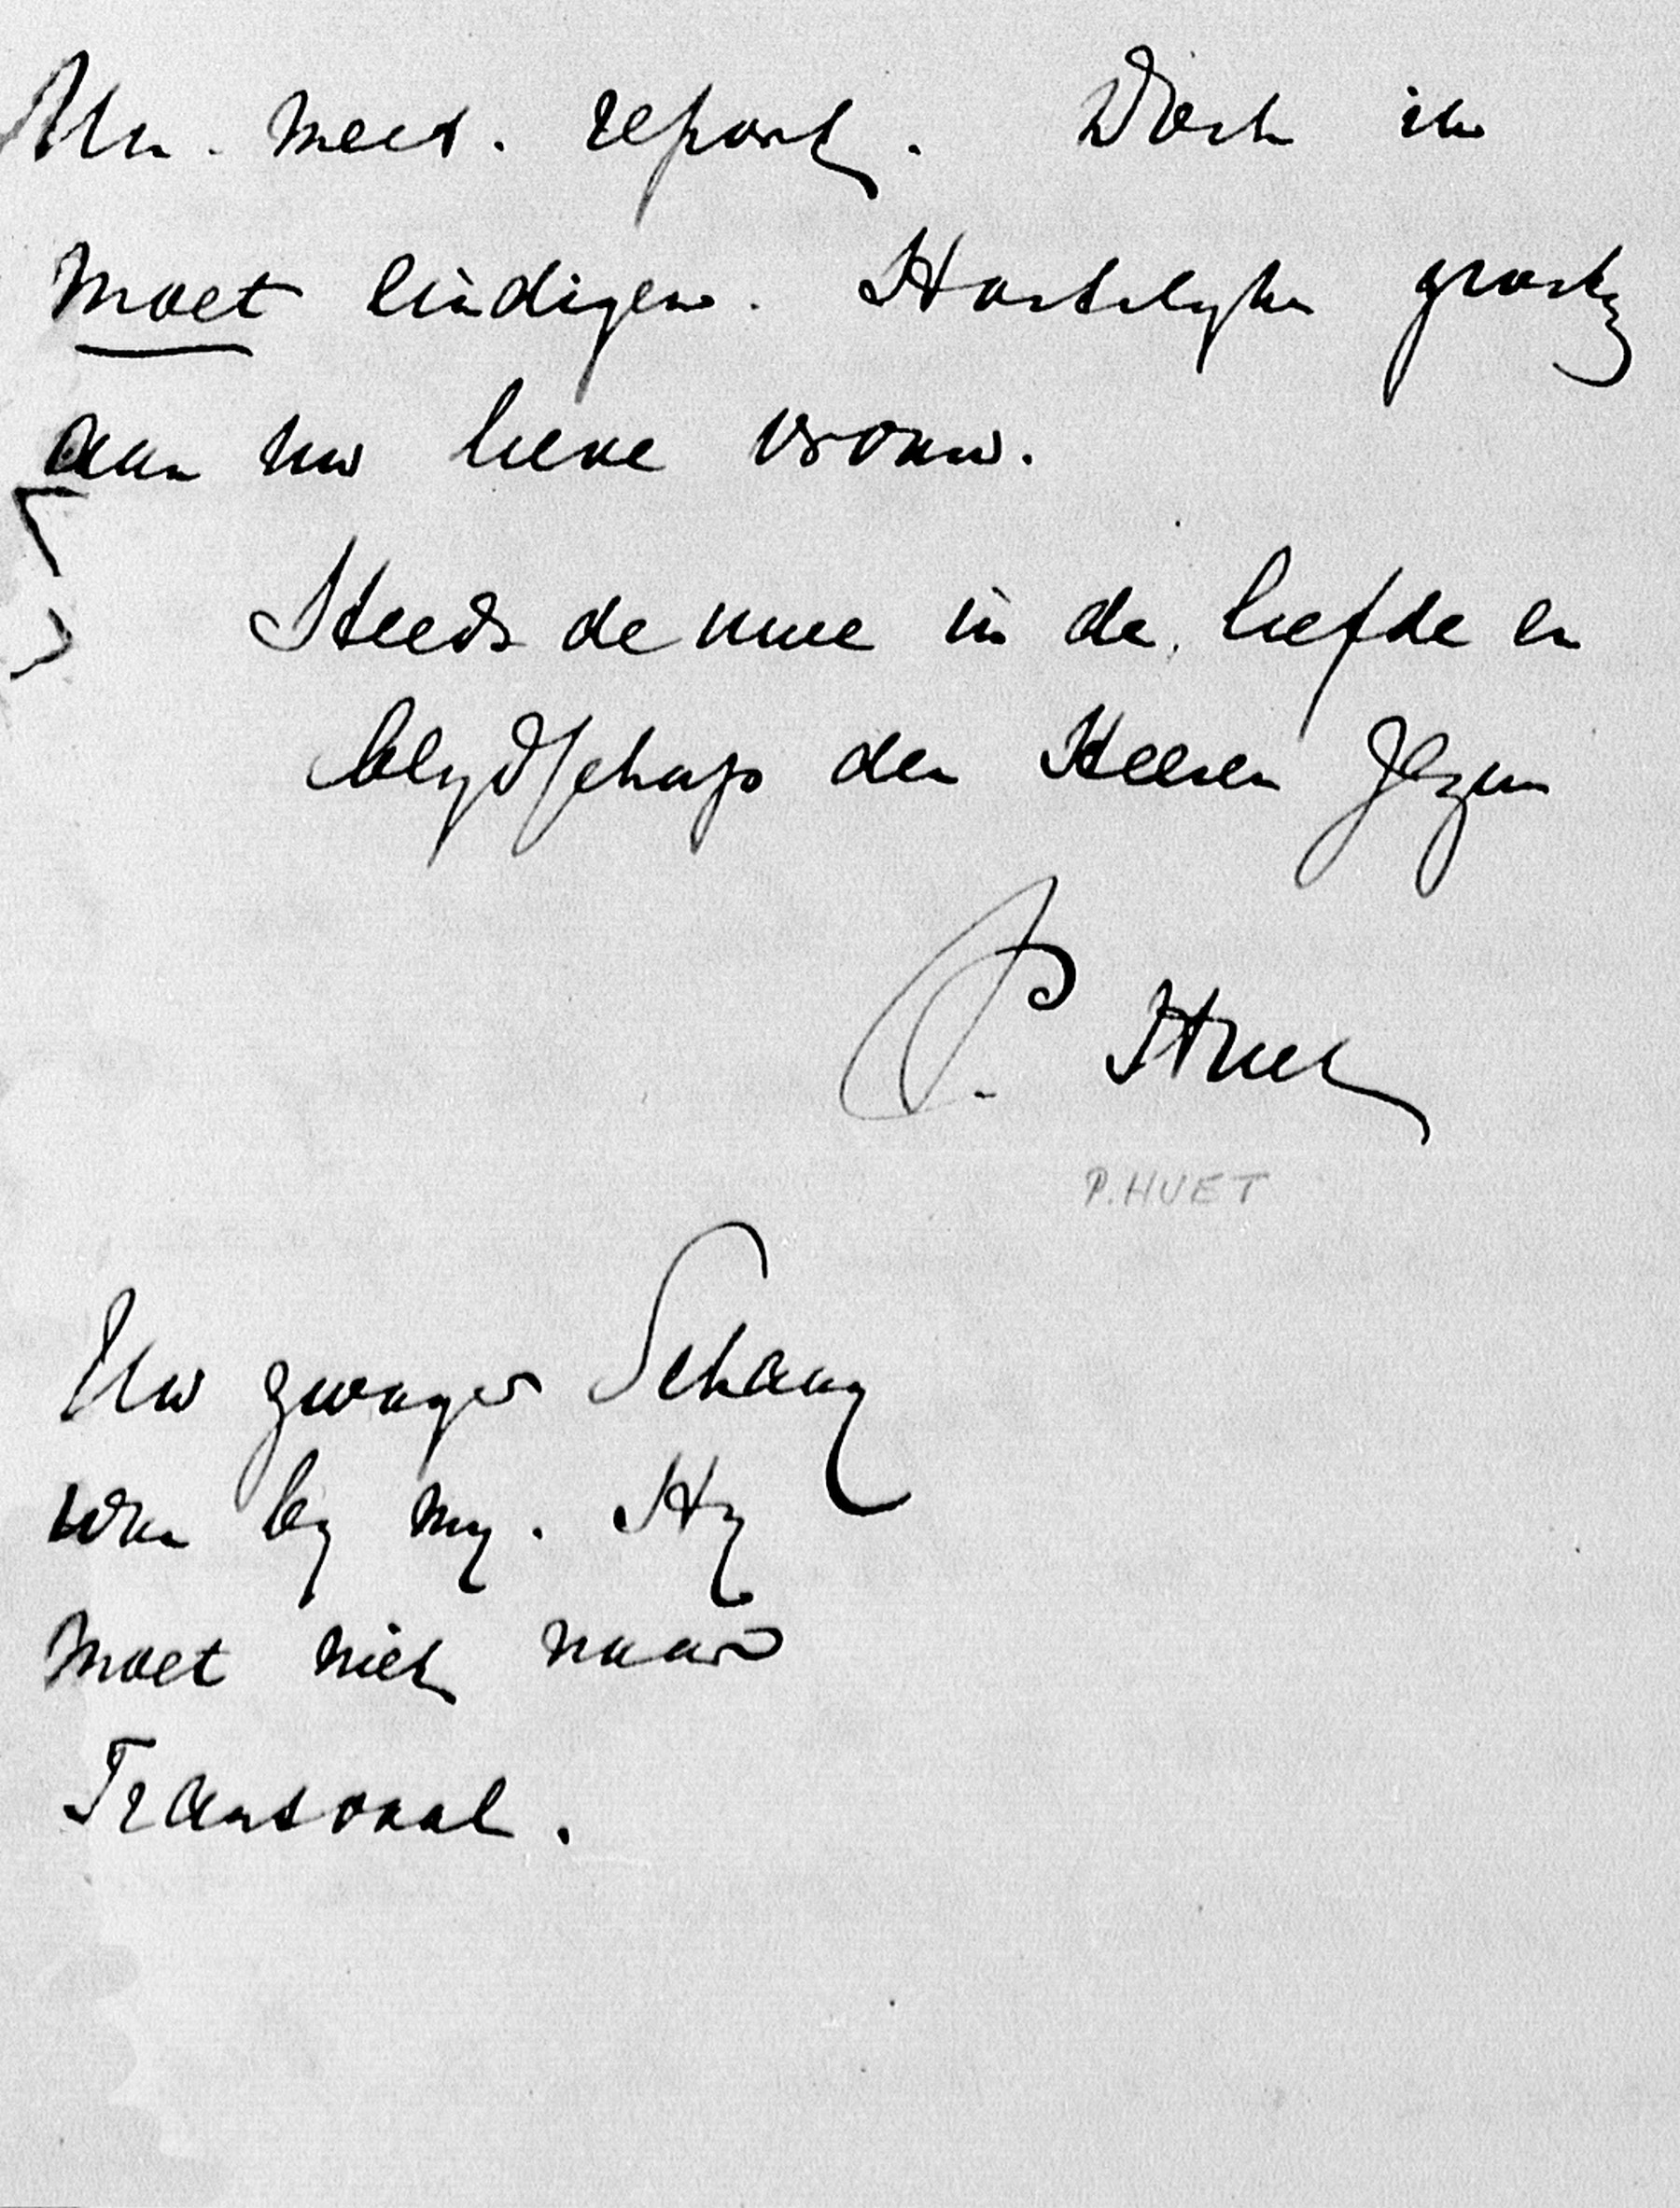 Un. meet. report. Doch ik
moet eindigen. Hartelyke groete
aan uw lieve vrouw.
Steeds de uwe in de liefde en
blydschap des Heeren Jezus
P. Huet
P. HUET
Uw zwager Schaay
was by my. Hy
moet niet naar
Transvaal.